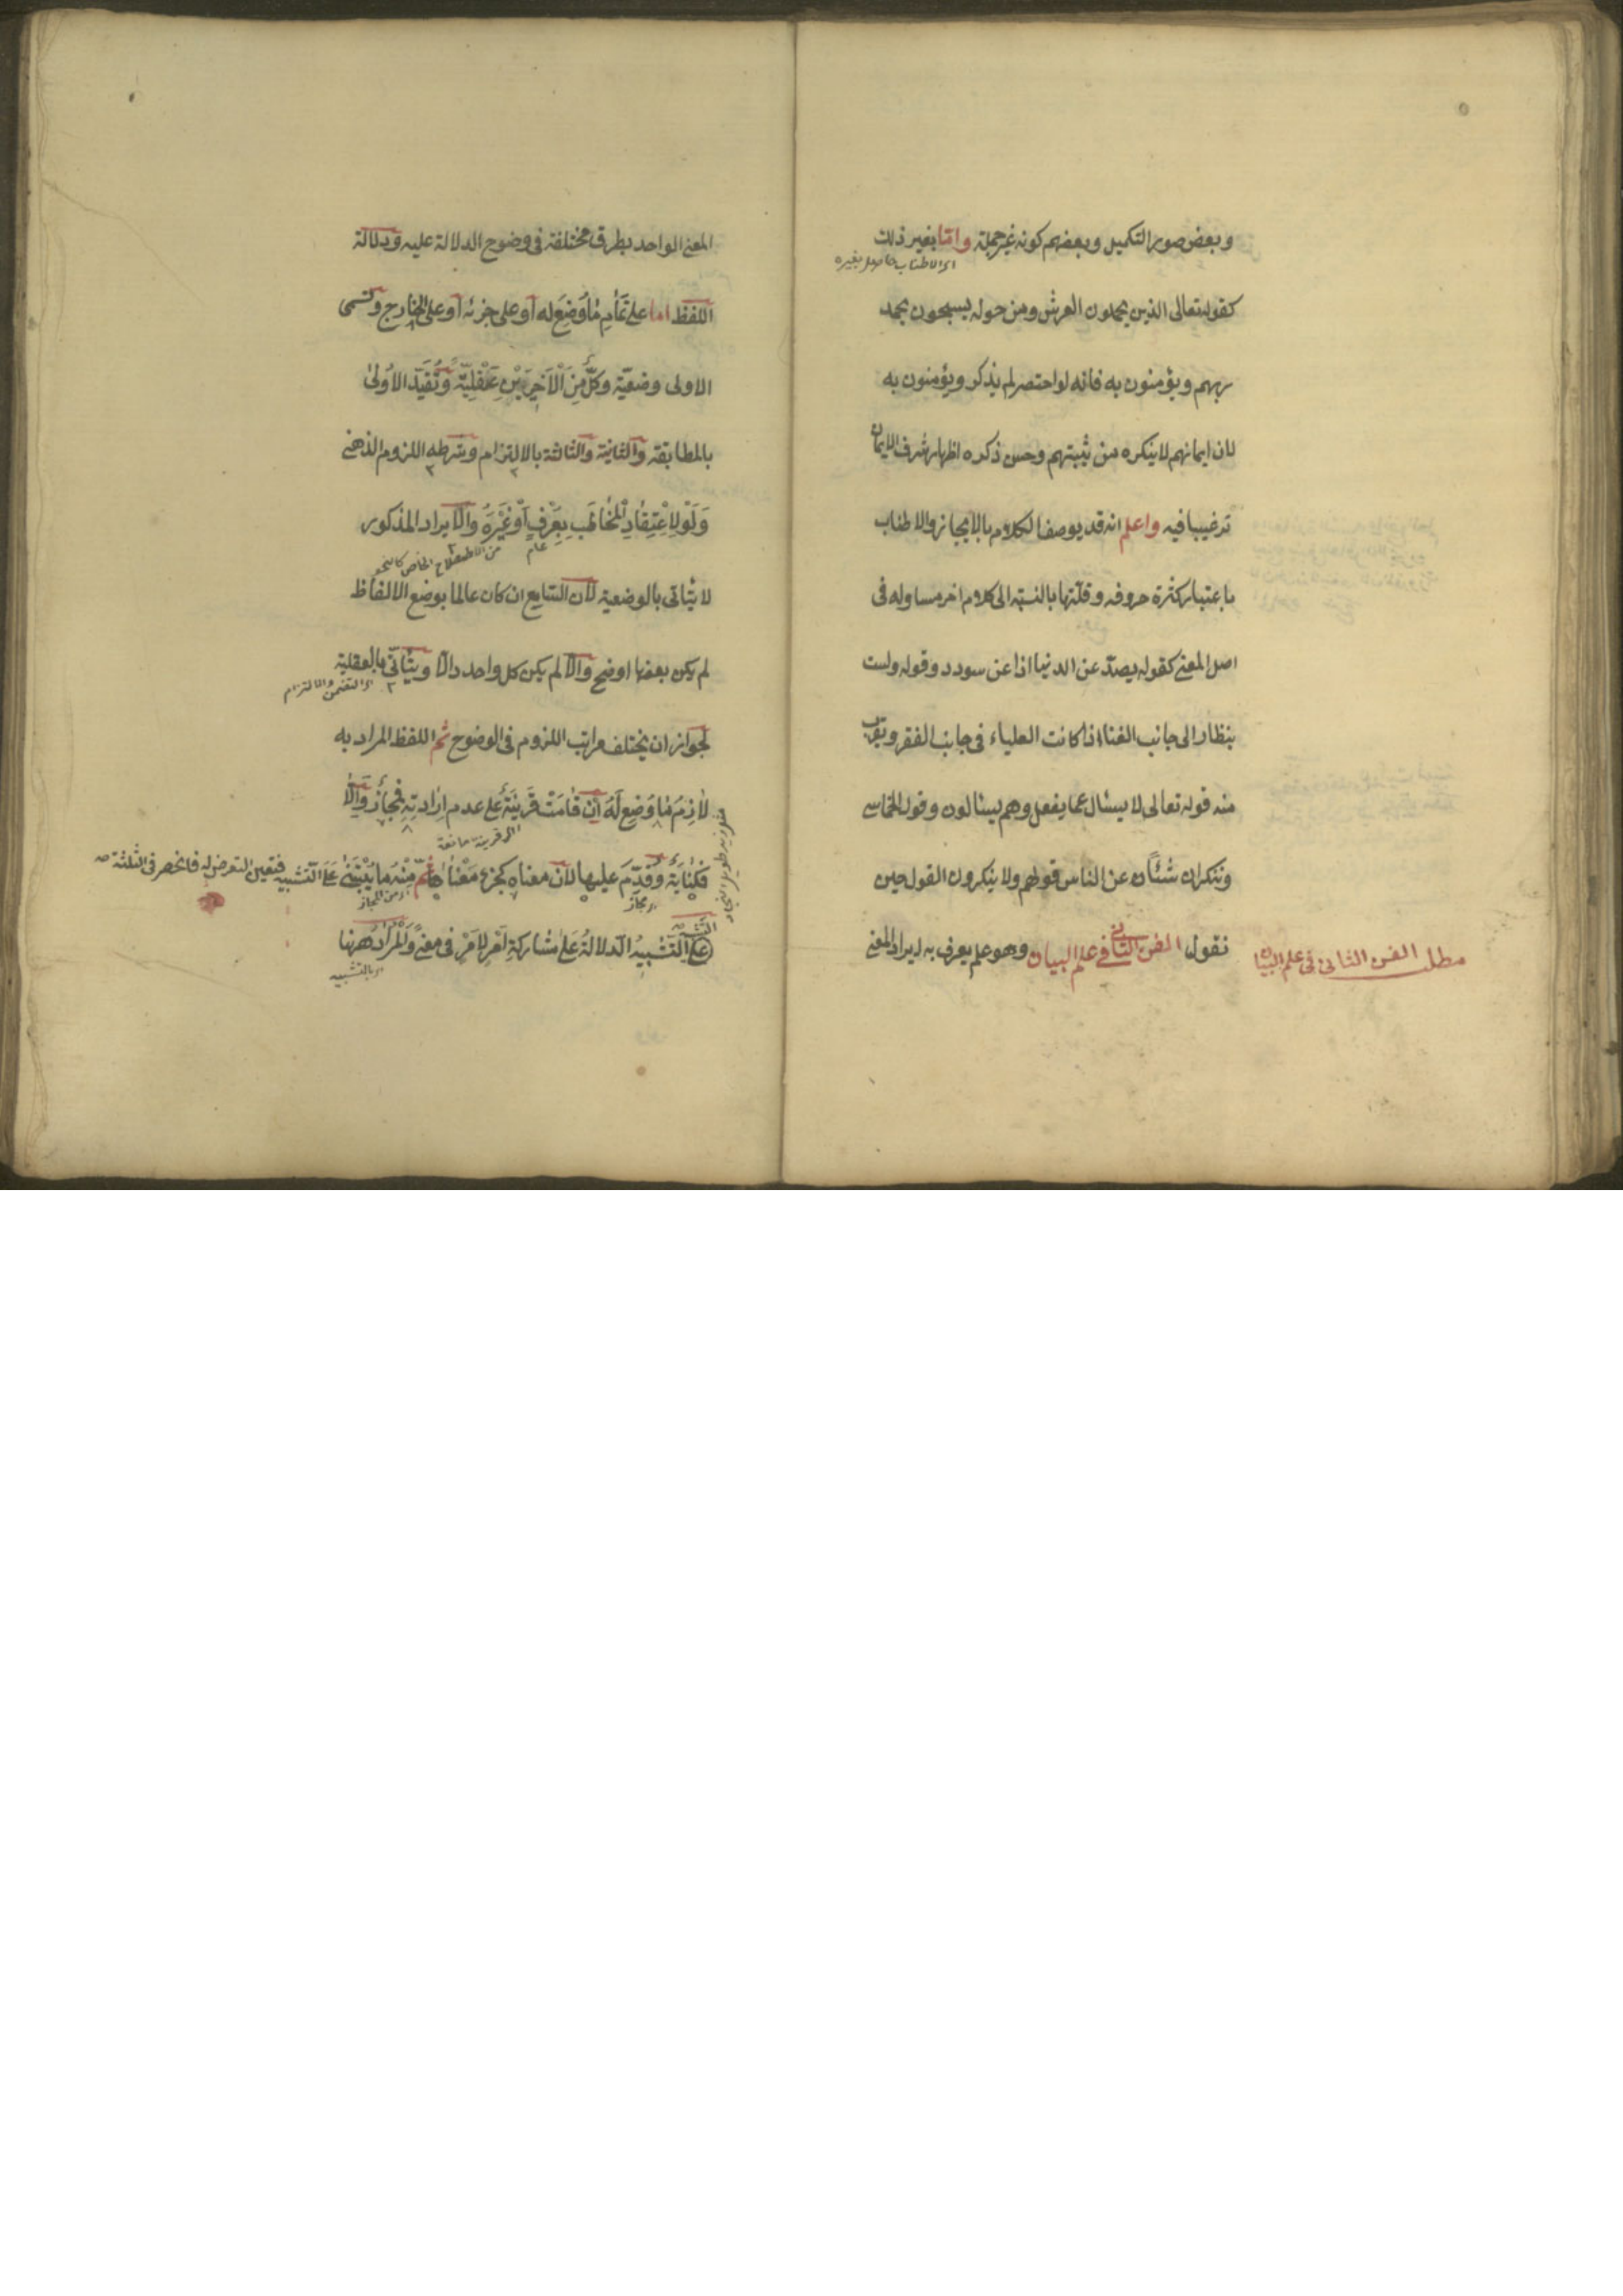 وبعض صور التكميل وبعضهم كونه غير جملة واما بغير ذلك
اى الاطناب حاصل بغيره
كقوله تعالى الذين يحملون العرش ومن حوله يسبحون بحمد
ربهم ويؤمنون به فانه لو اختصر لم يذكر ويؤمنون به
لان ايمانهم لا ينكره من يثبتهم وحسن ذكره اظهار شرف الايمان
ترغيبا فيه واعلم انه قد يوصف الكلام بالايجاز والاطناب
باعتبار كثرة حروفه وقلتها بالنسبة الى كلام اخر مساو له فى
اصل المعنى كقوله يصد عن الدنيا اذا عن سودد وقوله ولست
بنظار الى جانب الغنا اذا كانت العلياء فى جانب الفقر ويقرب
منه قوله تعالى لا يسئال عما يفعل وهم يسئالون وقول الحماسى
وننكر ان شئنا عن الناس قولهم ولا ينكرون القول حين
نقول الفن الثانى فى علم البيان وهو علم يعرف به ايراد المعنى
مطلب الفن الثانى فى علم البيان
المعنى الواحد بطرق مختلفة فى وضوح الدلالة عليه ودلالة
اللفظ اما على تمام ما وضع له او على جزئه او على الخارج وتسمى
الاولى وضعية وكل من الاخريين عقلية وتقيد الاولى
بالمطابقة والثانية والثالثة بالالتزام وشرطه اللزوم الذهنى
ولو لاعتقاد المخاطب بعرف او غيره والايراد المذكور
عام
من الاصطلاح الخاص كالنحو
لا يتاتى بالوضعية لان السامع ان كان عالما بوضع الالفاظ
لم يكن بعضها اوضح والا لم يكن كل واحد دالا ويتاتى بالعقلية
اى التضمن والالتزام
لجواز ان يختلف مراتب اللزوم فى الوضوح ثم اللفظ المراد به
لازم ما وضع له ان قامت قرينة على عدم ارادته فمجاز والا
اى قرينة مانعة
فكناية وقدم عليها لان معناه كجزء معناها ثم منه ما يبتنى على التشبيه فتعين التعرض له فانحصر فى الثلثة
اى مجاز
اى من المجاز
التشبيه الدلالة على مشاركة امر لامر فى معنى والمراد ههنا
اى بالتشبيه